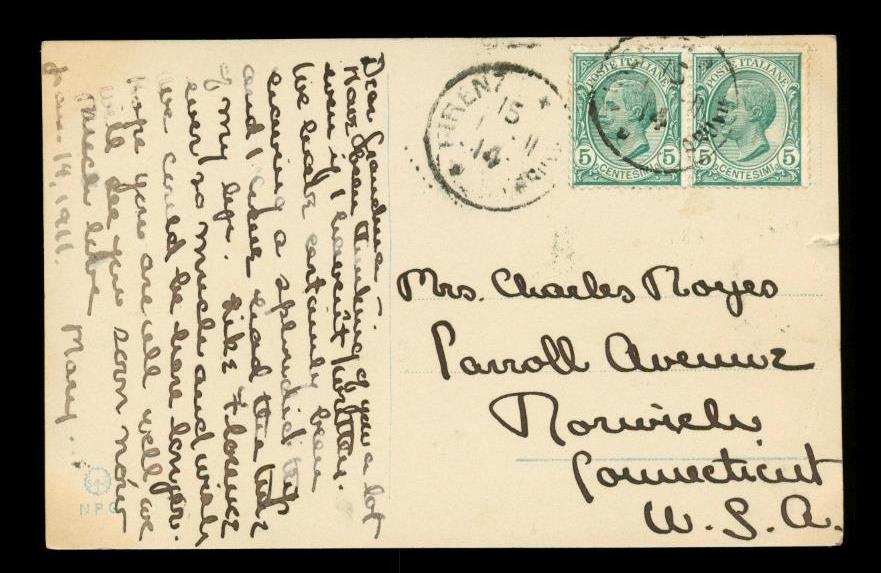 Dear Grandma
Have been thinking of you a lot
even if I haven't written.
We have certainly been
enjoying a splendid trip
and I have had the time
of my life. Like Florence
ever so much and wish
we could be here longer.
Hope you are all well we
will see you soon now
Much love Mary
Jan. 14, 1911.
NPG
FIRENZE
15
1 11
14
POSTE ITALIANE
5 CENTESIMI 5
POSTE ITALIANE
5 CENTESIMI 5
15
14
Mrs. Charles Noyes
Parroll Avenue
Norwich
Connecticut
U. S. A.